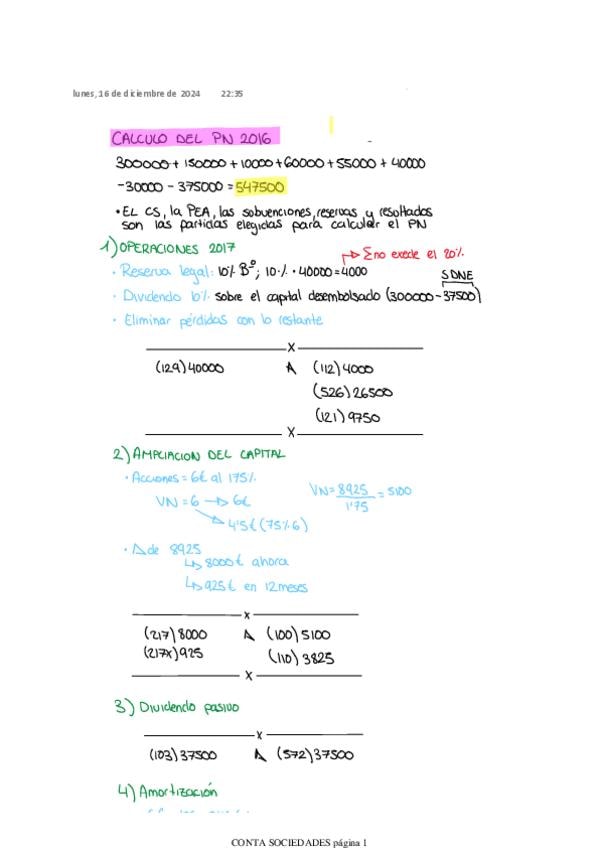 lunes, 16 de diciembre de 2024 22:35
CALCULO DEL PN 2016
300000 + 150000 + 10000 + 60000 + 55000 + 40000
- 30000 - 375000 = 547500
• EL CS, la PEA, las subvenciones, reservas y resultados
son las partidas elegidas para calcular el PN
1) OPERACIONES 2017
Σ no excede el 20%
· Reserva legal: 10% Bº; 10% · 40000 = 4000
SDNE
· Dividendo 10% sobre el capital desembolsado (300000 - 37500)
· Eliminar pérdidas con lo restante
x
(129) 40000 A (112) 4000
(526) 26500
(121) 9750
x
2) AMPLIACION DEL CAPITAL
· Acciones = 6€ al 175%
VN = 6 → 6€
→ 4'5€ (75% 6)
VN = 8925 / 1'75 = 5100
· Δ de 8925
↳ 8000€ ahora
↳ 925€ en 12 meses
x
(217) 8000 A (100) 5100
(217X) 925 (110) 3825
x
3) Dividendo pasivo
x
(103) 37500 A (572) 37500
4) Amortización
CONTA SOCIEDADES página 1